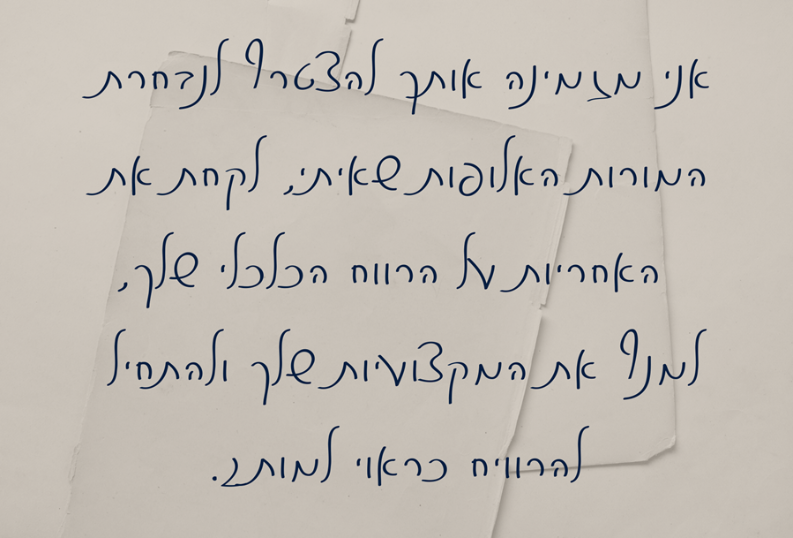 אני מזמינה אותך להצטרף לנבחרת
המורות האלופות שאיתי, לקחת את
האחריות על הרווח הכלכלי שלך,
למנף את המקצועיות שלך ולהתחיל
להרוויח כראוי למותג.